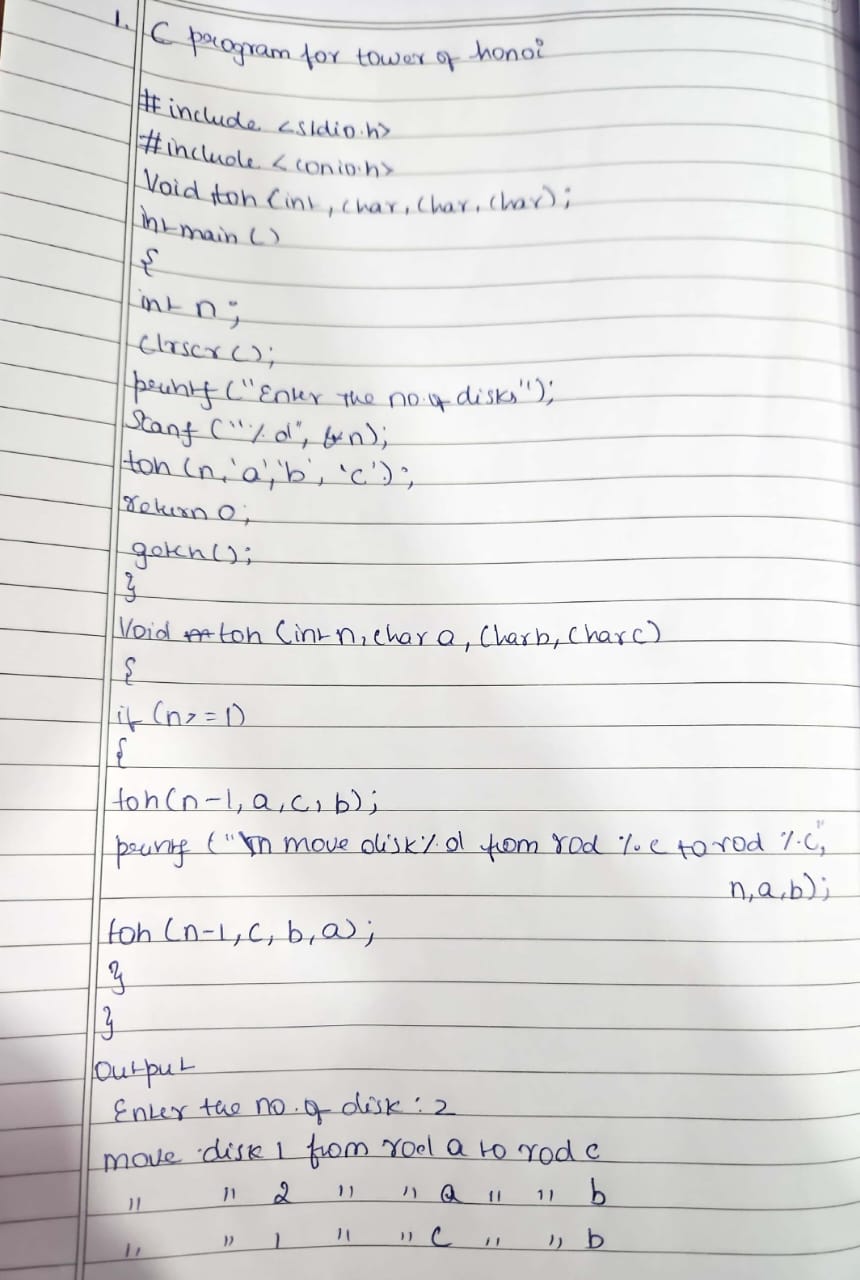 1. C program for tower of honoi
#include <stdio.h>
#include <conio.h>
Void toh (int, char, char, char);
int main ()
{
int n;
clrscr ();
printf ("Enter the no. of disks");
Scanf ("%d", &n);
toh (n, 'a', 'b', 'c');
return 0;
getch();
}
Void toh (int n, char a, char b, char c)
{
if (n>=1)
{
toh(n-1, a, c, b);
printf ("\n move disk %d from rod %c to rod %c",
n, a, b);
toh (n-1, c, b, a);
}
}
Output
Enter the no. of disk : 2
move disk 1 from rod a to rod c
" " 2 " " a " " b
" " 1 " " c " " b